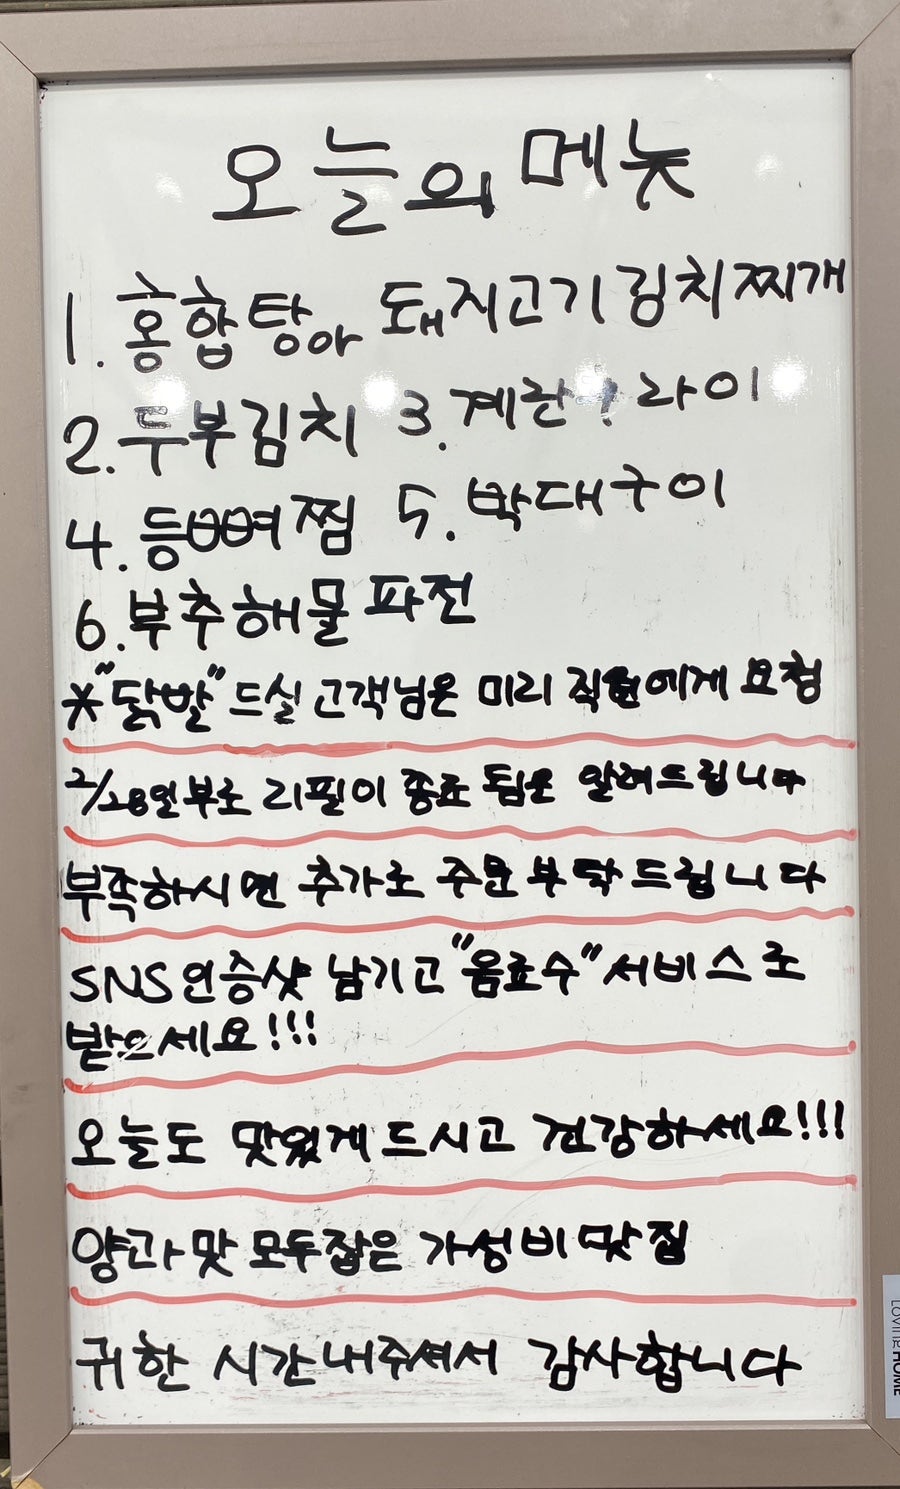 오늘의 메뉴
1. 홍합탕 or 돼지고기김치찌개
2. 두부김치 3. 계란후라이
4. 등뼈찜 5. 박대구이
6. 부추해물파전
※"닭발"드실 고객님은 미리 직원에게 요청
2/28일부로 리필이 종료 됨은 알려드립니다
부족하시면 추가로 주문부탁드립니다
SNS인증샷 남기고 "음료수"서비스로
받으세요!!!
오늘도 맛있게드시고 건강하세요!!!
양과맛 모두잡은 가성비맛집
귀한 시간내주셔서 감사합니다
LOVING HOME